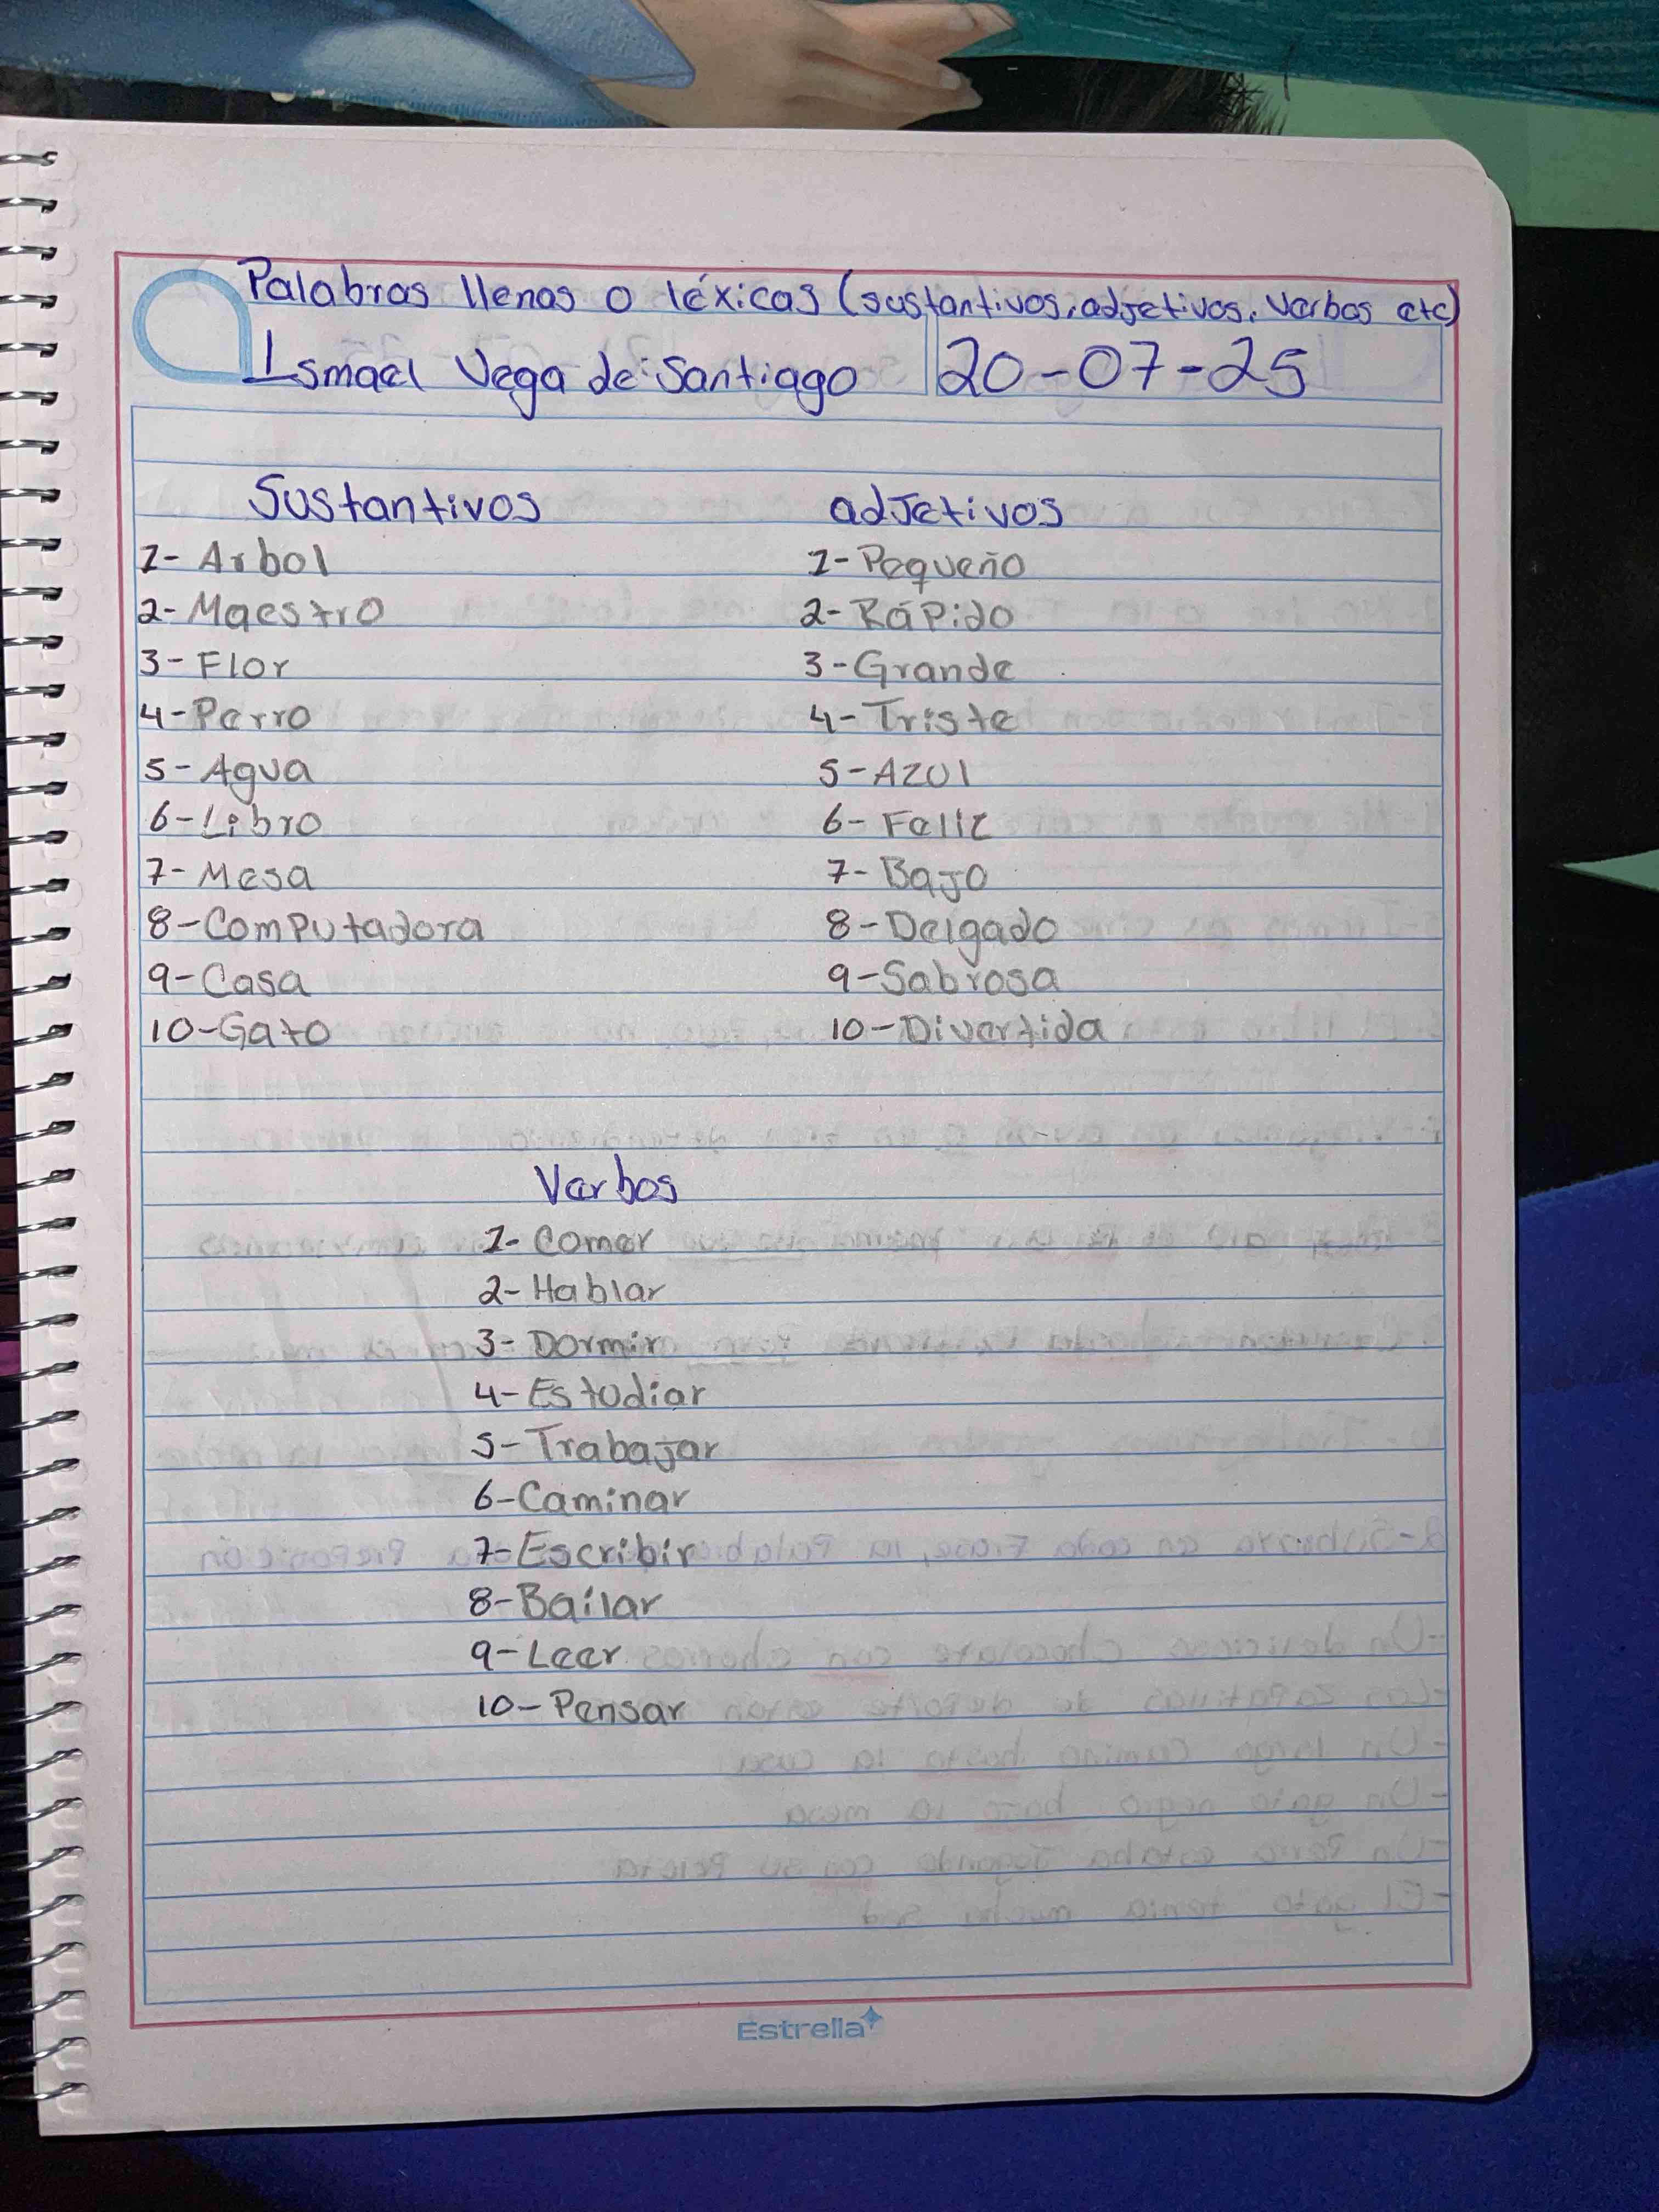 Palabras llenas o léxicas (sustantivos, adjetivos, verbos etc)
Ismael Vega de Santiago 20-07-25
Sustantivos
1- Arbol
2- Maestro
3- Flor
4- Perro
5- Agua
6- Libro
7- Mesa
8- Computadora
9- Casa
10- Gato
adjetivos
1- Pequeño
2- Rápido
3- Grande
4- Triste
5- Azul
6- Feliz
7- Bajo
8- Delgado
9- Sabrosa
10- Divertida
Verbos
1- Comer
2- Hablar
3- Dormir
4- Estudiar
5- Trabajar
6- Caminar
7- Escribir
8- Bailar
9- Leer
10- Pensar
Estrella